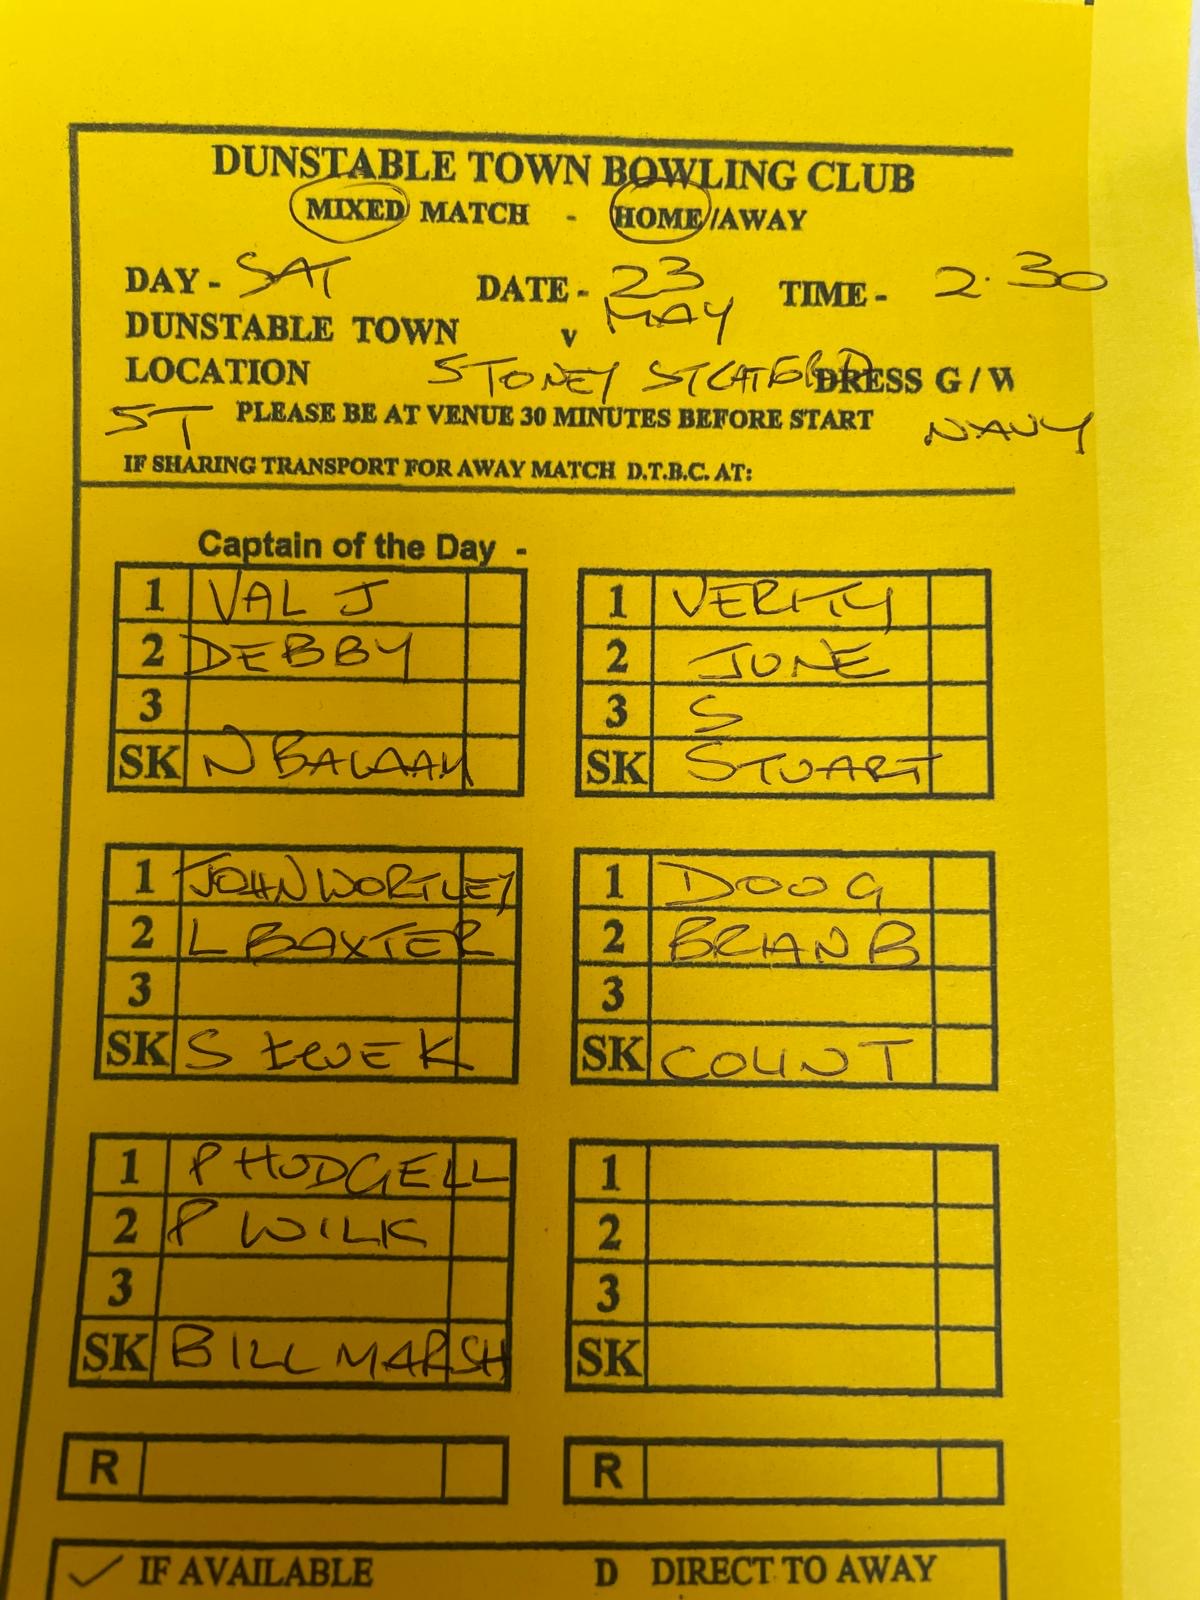 DUNSTABLE TOWN BOWLING CLUB
MIXED MATCH - HOME/AWAY
DAY - SAT DATE - 23 MAY TIME - 2.30
DUNSTABLE TOWN v
LOCATION STONEY DRESS G/W
ST PLEASE BE AT VENUE 30 MINUTES BEFORE START NAVY
IF SHARING TRANSPORT FOR AWAY MATCH D.T.B.C. AT:
Captain of the Day -
1 VAL J
2 DEBBY
3
SK N BALAAM
1 VERITY
2 JUNE
3 S
SK STUART
1 JOHN WORTLEY
2 L BAXTER
3
SK S
1 DOUG
2 BRIAN B
3
SK COUNT
1 P HUDGELL
2 P WILK
3
SK BILL MARSH
1
2
3
SK
R
R
✓ IF AVAILABLE D DIRECT TO AWAY